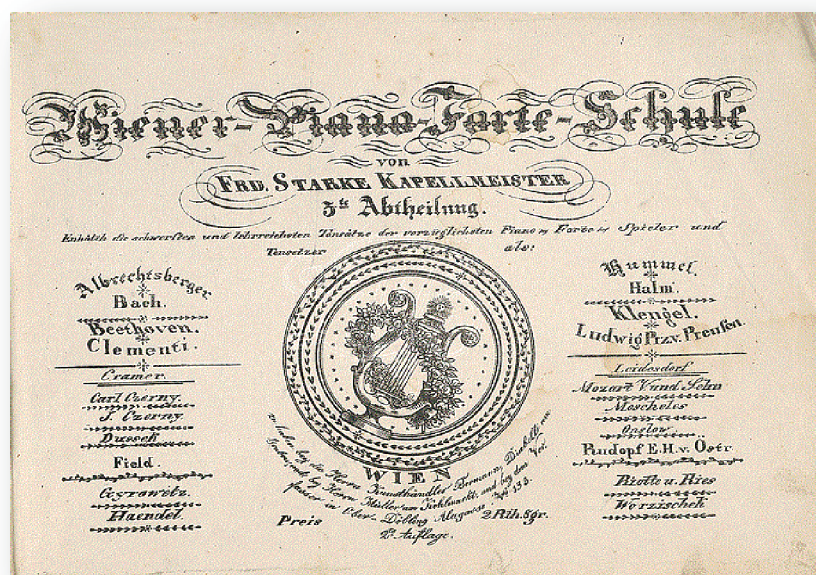 Wiener-Piano-Forte-Schule
von
FRD. STARKE KAPELLMEISTER
3te Abtheilung.
Enthälth die schwersten und lehrreichsten Tonsätze der vorzüglichsten Piano Forte Spieler und
Tonsetzer als:
Albrechtsberger
Bach.
Beethoven.
Clementi.
Cramer.
Carl Czerny.
J. Czerny.
Dussek
Field.
Gyrowetz.
Haendel.
Hummel.
Halm.
Klengel.
Ludwig Prz. v. Preußen.
Leidesdorf
Mozart V. und Sohn
Moscheles
Onslow.
Rudopf E.H. v. Östr.
Riotte u. Ries
Worzischek
WIEN
zu haben bey die Herrn Kunsthändler Bermann, Diabelli
bey Herrn Müller am Kohlmarkt und bey dem Ver-
fasser in Ober-Döbling No. 133.
Preis 2 Rth. 8gr.
2te Auflage.